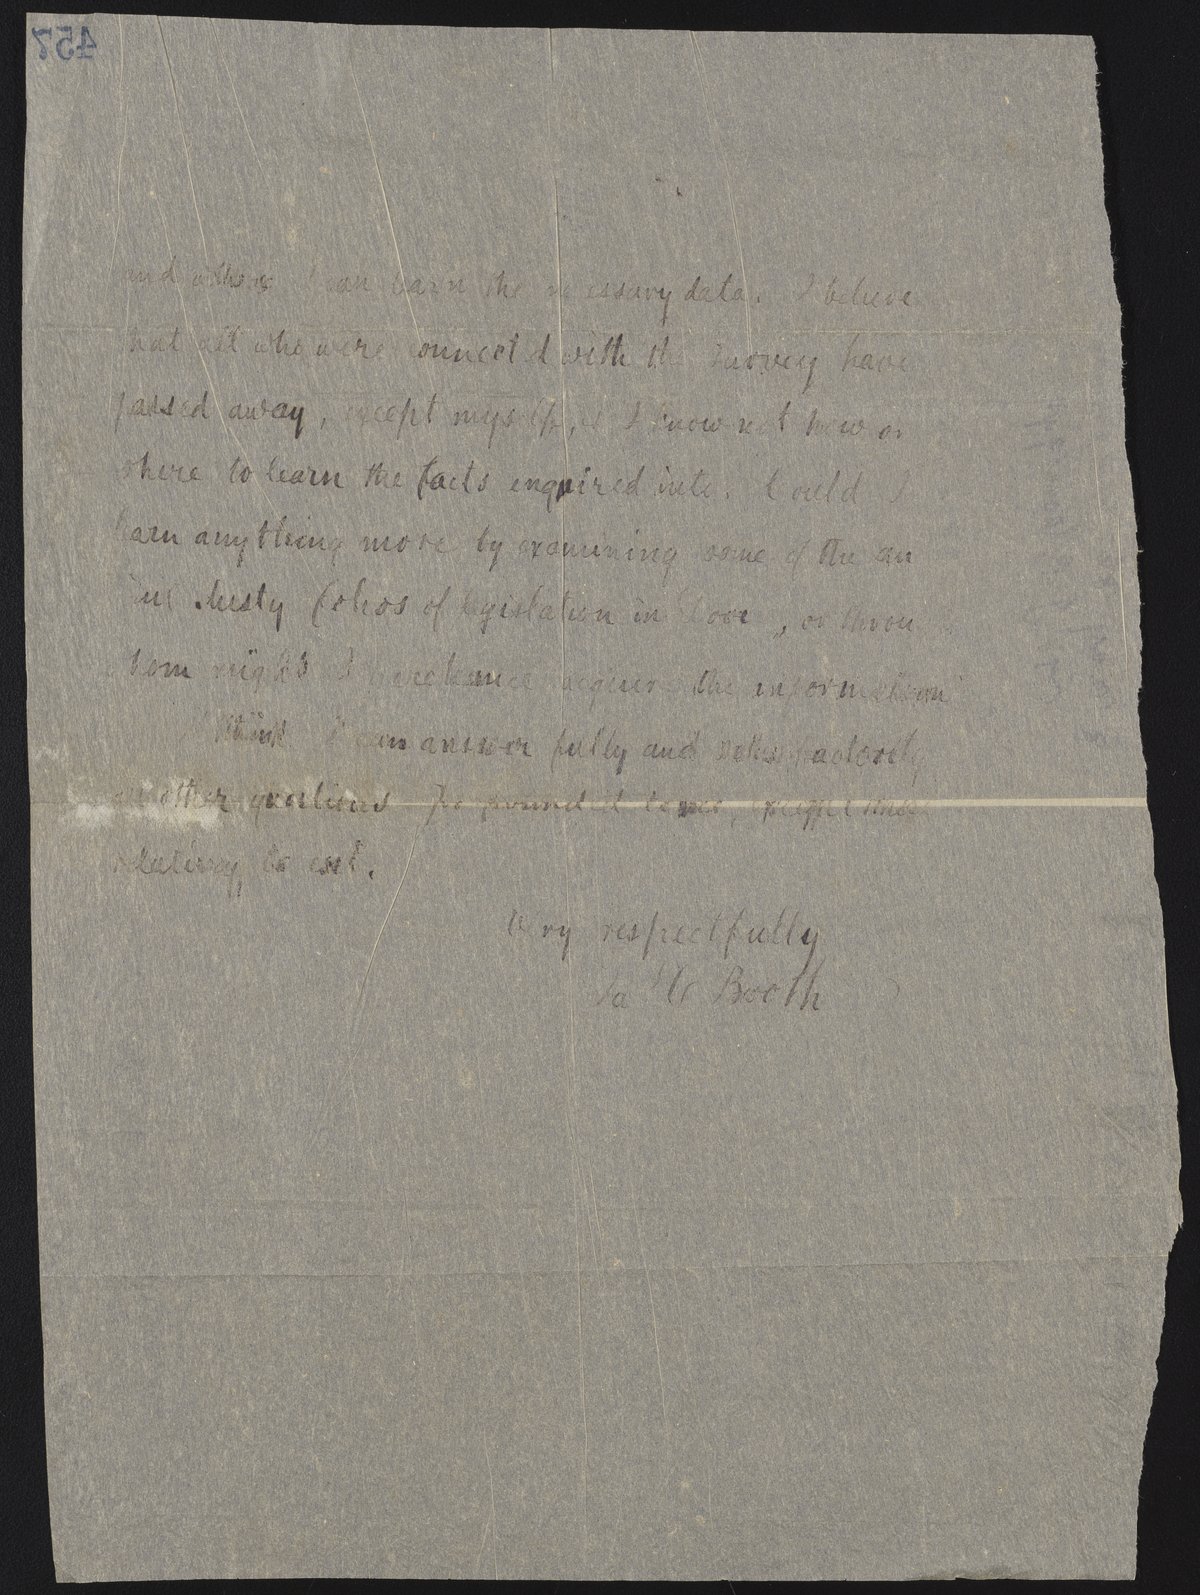 457
and others I can learn the necessary data. I believe
that all who were connected with the survey have
passed away, except myself, & I know not how or
where to learn the facts enquired into. Could I
learn anything more by examining some of the an
dusty folios of legislation in , or throu
whom might I perchance acquire the information
I think I can answer fully and satisfactorily
all other questions propounded to me, except those
relating to cost.
Very respectfully
Booth